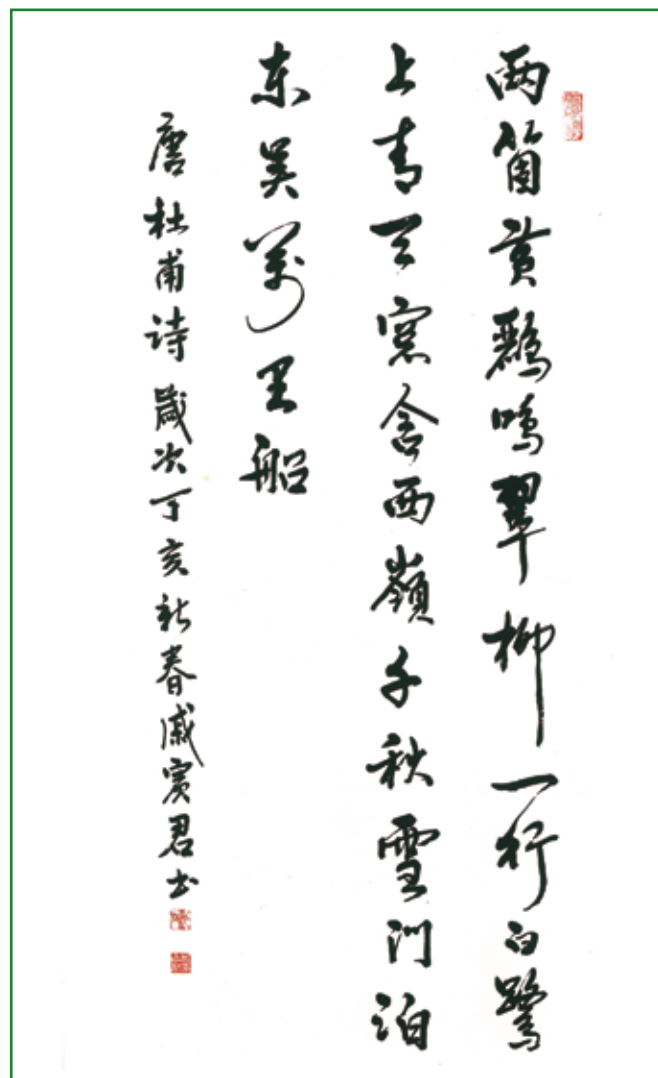 两箇黄鹂鸣翠柳一行白鹭
上青天窓含西嶺千秋雪门泊
东吴萬里船
唐杜甫诗岁次丁亥新春戚宾君书